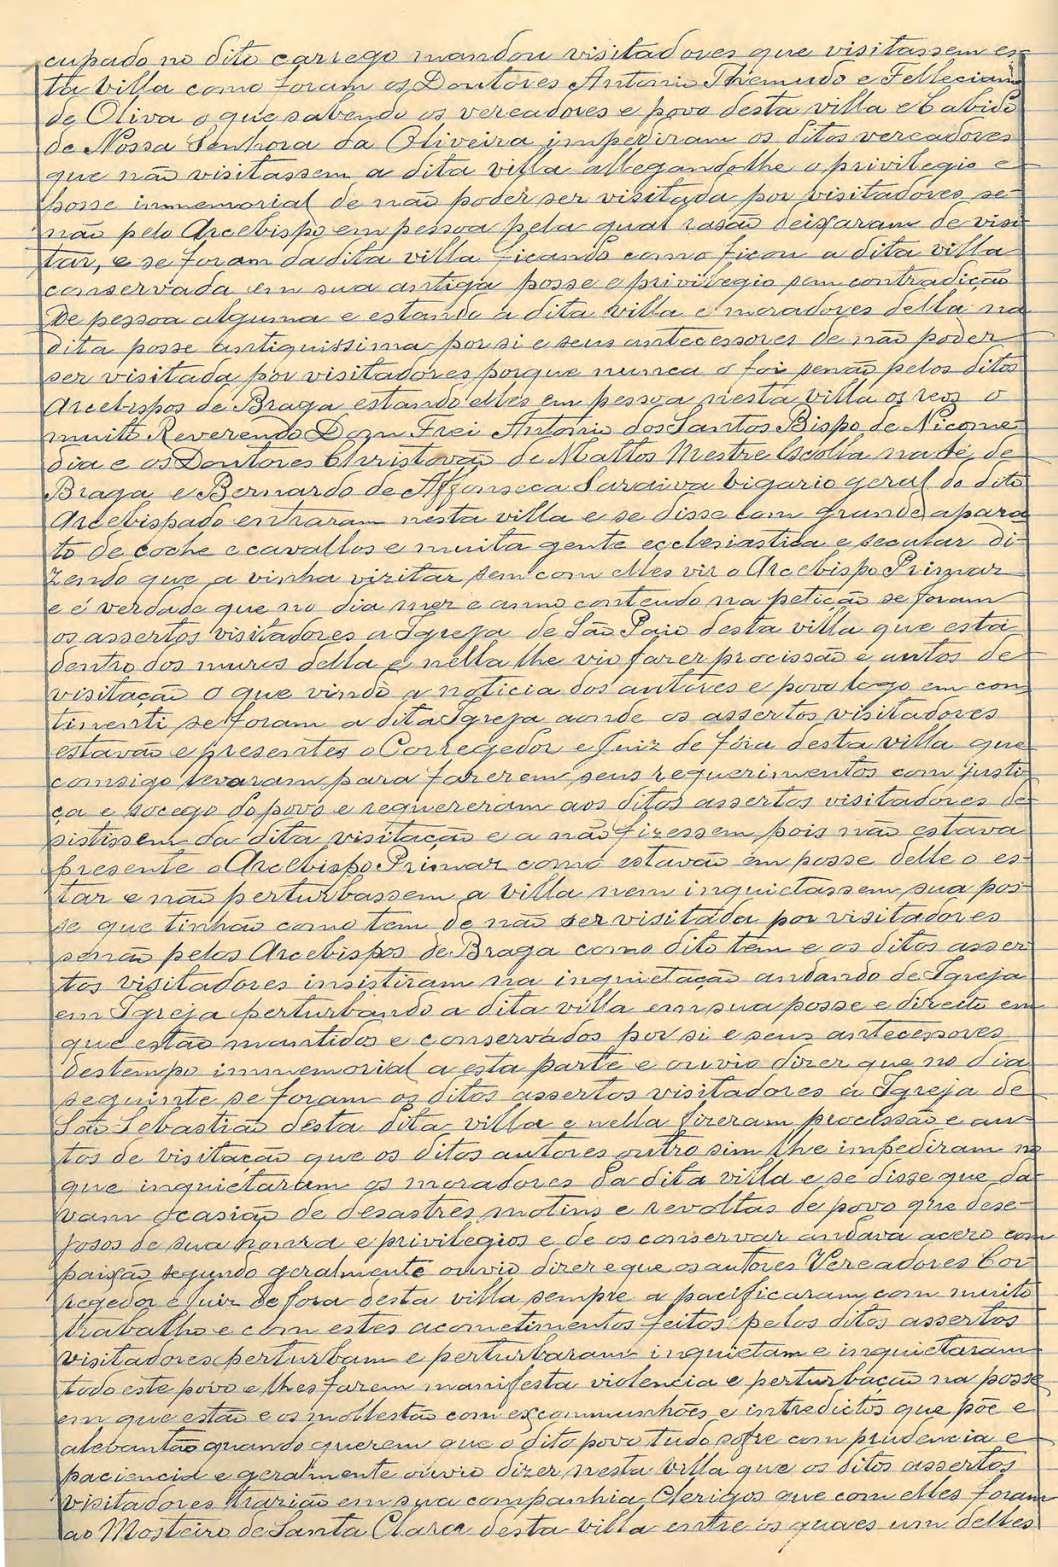 cupado no dito carrego mandou visitadores que visitassem es-
ta villa como foram os Doutores Antonio Themudo e Felleciano
de Oliva o que sabendo os vereadores e povo desta villa e Cabido
de Nossa Senhora da Oliveira impediram os ditos vereadores
que não visitassem a dita villa allegandolhe o privilegio e
posse inmemorial de não poder ser visitada por visitadores se-
não pelo Arcebispo em pessoa pela qual rasão deixaram de visi
tar, e se foram da dita villa ficando como ficou a dita villa
conservada em sua antiga posse e privilegio sem contradição
de pessoa alguma e estando a dita villa e moradores della na
dita posse antiquissima por si e seus antecessores de não poder
ser visitada por visitadores porque nunca o foi senão pelos ditos
Arcebispos de Braga estando elles em pessoa nesta villa os reos o
muito Reverendo Dom Frei Antonio dos Santos Bispo de Nicome
dia e os Doutores Christovão de Mattos Mestre Escolla na Sé de
Braga e Bernardo de Affonseca Saraiva Vigario geral do dito
Arcebispado entraram nesta villa e se disse com grande apara
to de coche e cavallos e muita gente ecclesiastica e secular di-
zendo que a vinha vizitar sem com elles vir o Arcebispo Primaz
e é verdade que no dia mez e anno contendo na petição se foram
os assertos visitadores a Igreja de São Paio desta villa que está
dentro dos muros della e nella lhe vio fazer procissão e autos de
visitação o que vindo a noticia dos autores e povo logo em con
tinenti se foram a dita Igreja aonde os assertos visitadores
estavão e presentes o Corregedor e Juiz de fóra desta villa que
comsigo levaram para fazerem seus requerimentos com justi
ça e socego do povo e requereram aos ditos assertos visitadores de
sistissem da dita visitação e a não fizessem pois não estava
presente o Arcebispo Primaz como estavão em posse delle o es-
tar e não perturbassem a villa nem inquietassem sua pos-
se que tinhão como tem de não ser visitada por visitadores
senão pelos Arcebispos de Braga como dito tem e os ditos asser
tos visitadores insistiram na inquietação andando de Igreja
em Igreja perturbando a dita villa em sua posse e direito em
que estão mantidos e conservados por si e seus antecessores
destempo immemorial a esta parte e ouvio dizer que no dia
seguinte se foram os ditos assertos visitadores á Igreja de
São Sebastião desta dita villa e nella fizeram procissão e au-
tos de visitação que os ditos autores outro sim lhe impediram no
que inquietaram os moradores da dita villa e se disse que da-
vam ocasião de desastres motins e revoltas de povo que dese-
josos de sua honra e privilegios e de os conservar andava acezo com
paixão segundo geralmente ouvio dizer e que os autores Vereadores Cor
regedor e Juiz de fora desta villa sempre a pacificaram com muito
trabalho e com estes acometimentos feitos pelos ditos assertos
visitadores perturbam e perturbaram inquietam e inquietaram
todo este povo e lhes fazem manifesta violencia e perturbação na posse
em que estão e os mollestão com excommunhões e intredictos que põe e
alevantão quando querem que o dito povo tudo sofre com prudencia e
paciencia e geralmente ouvio dizer nesta villa que os ditos assertos
visitadores trarião em sua companhia Clerigos que com elles foram
ao Mosteiro de Santa Clara desta villa entre os quaes um delles